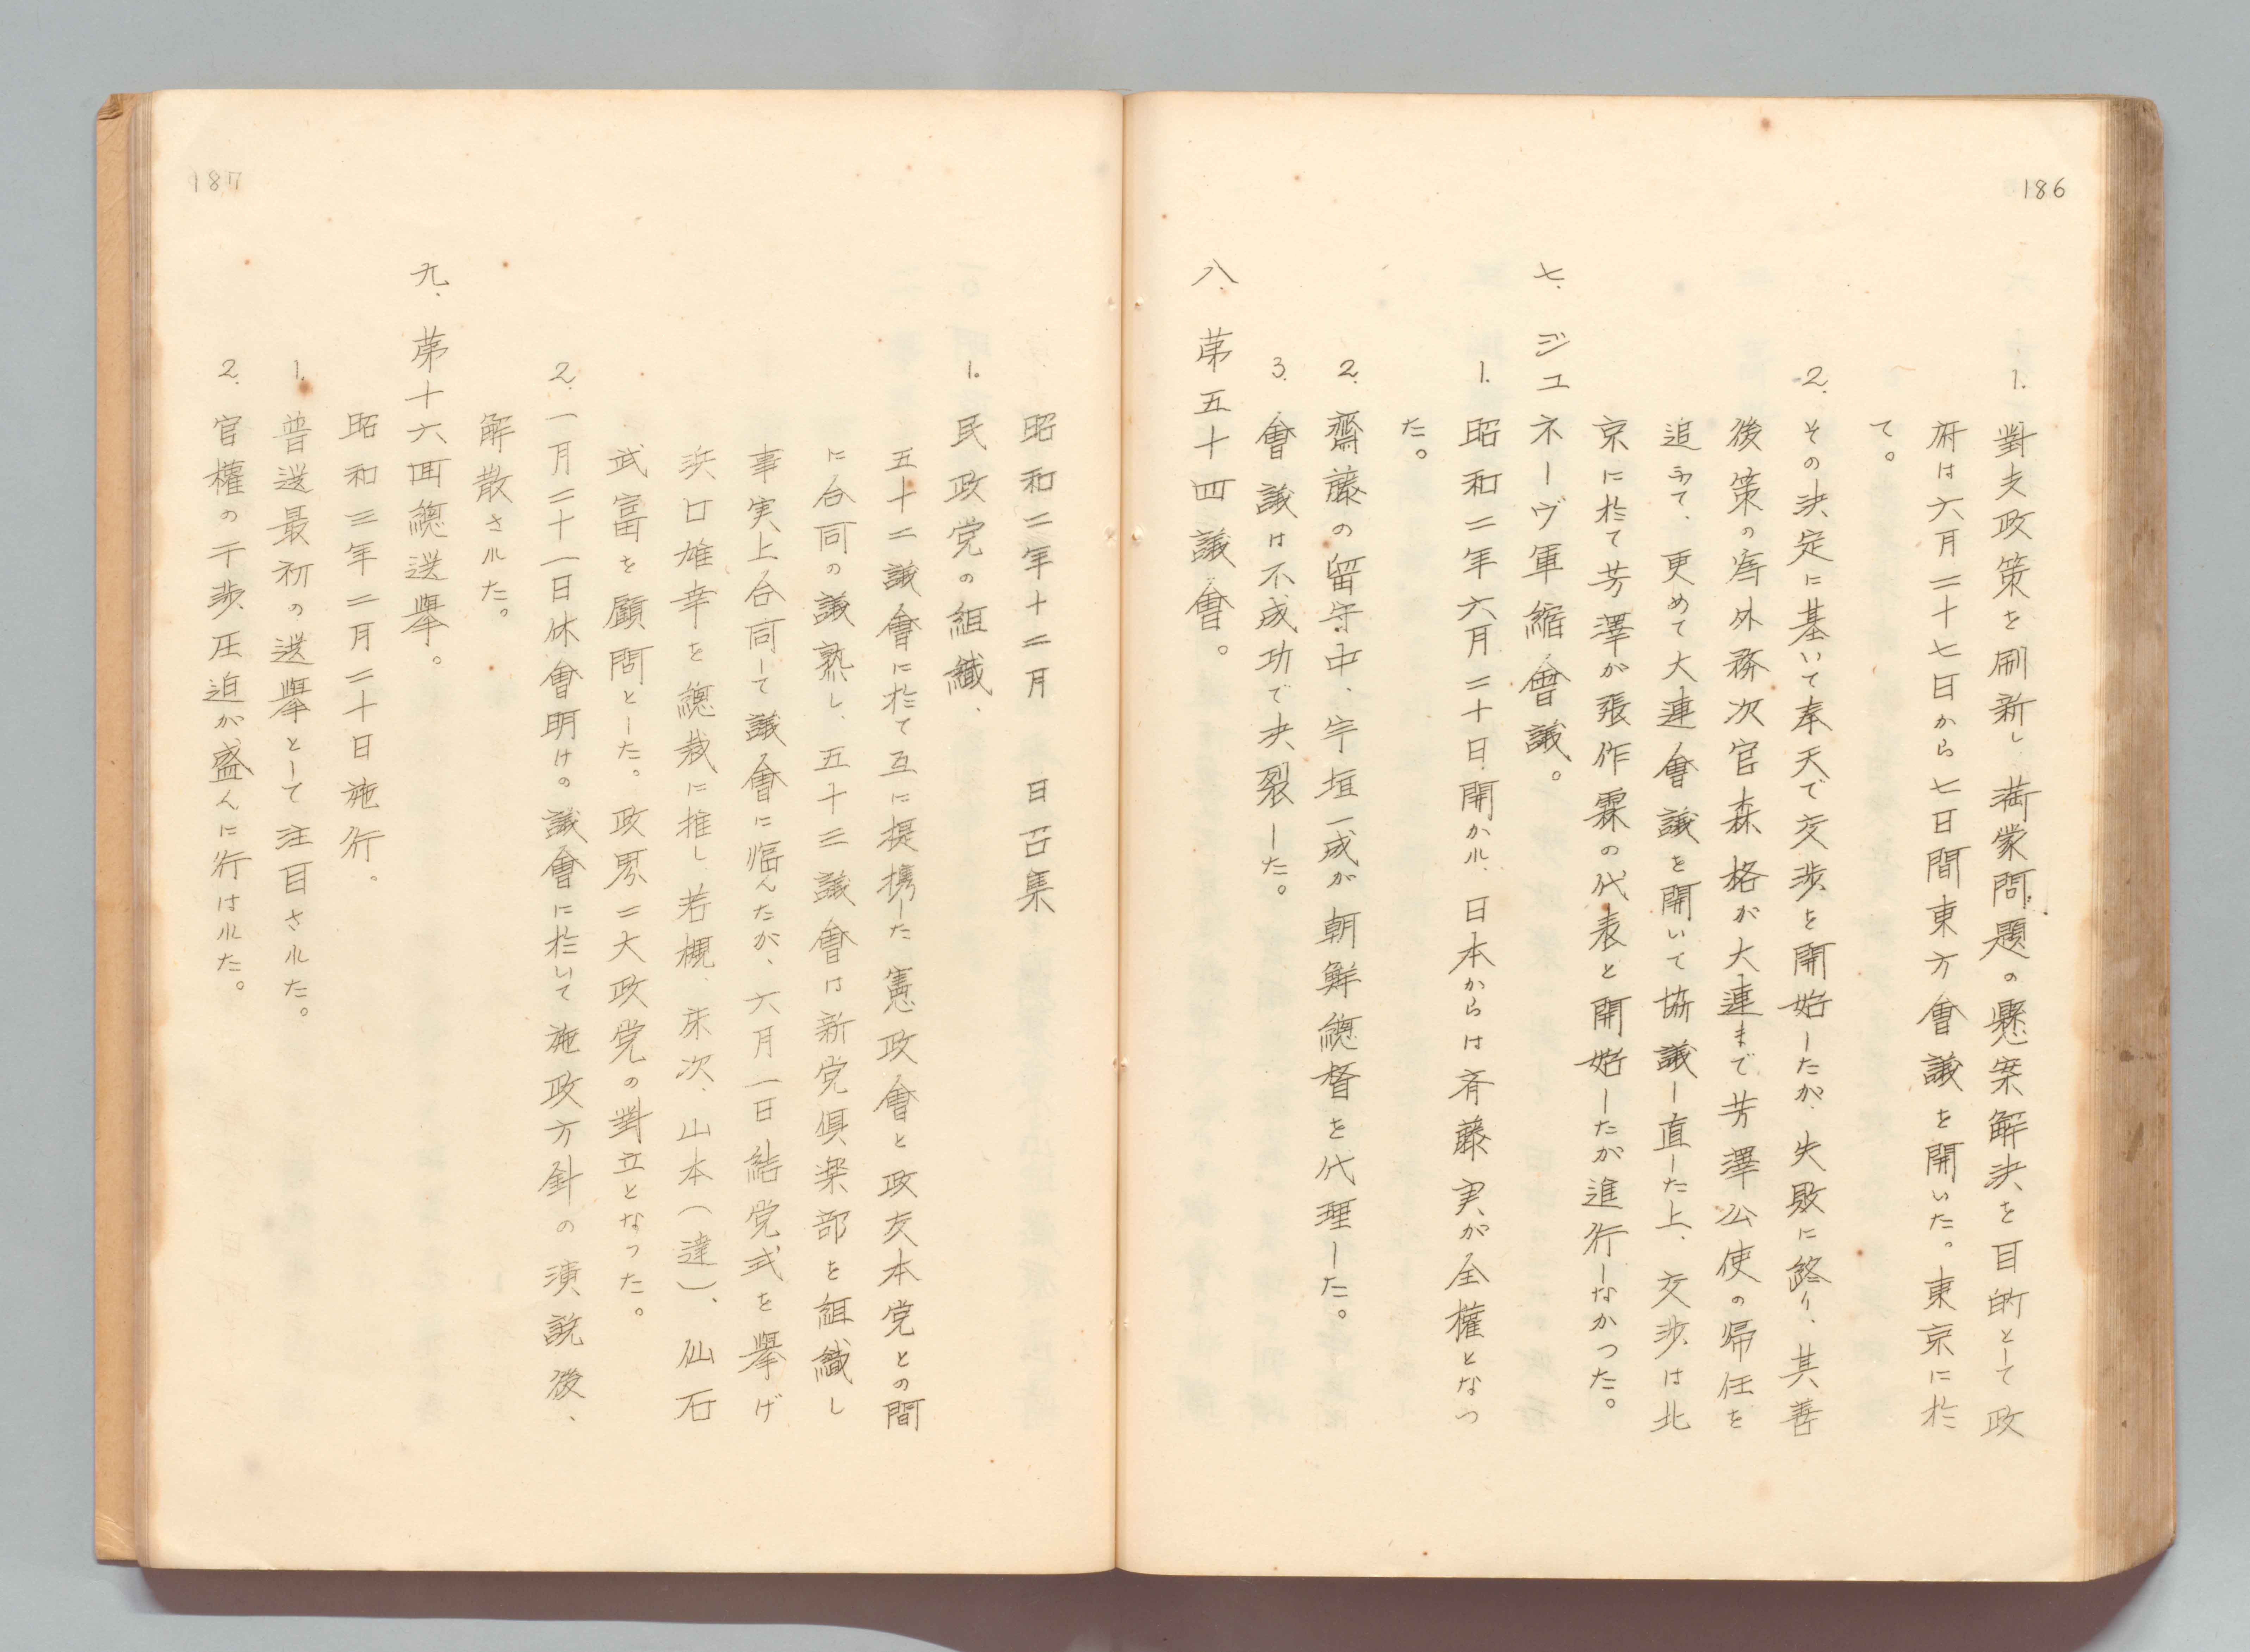 186
1. 對支政策を刷新し、満蒙問題の懸案解決を目的として政
府は六月二十七日から七日間東方會議を開いた。東京に於
て。
2. その決定に基いて奉天で交渉を開始したが、失敗に終り、其善
後策の為外務次官森格が大連まで芳澤公使の帰任を
追ふて、更めて大連會議を開いて協議し直した上、交渉は北
京に於て芳澤が張作霖の代表と開始したが進行しなかつた。
七. ジュネーヴ軍縮會議。
1. 昭和二年六月二十日開かれ、日本からは斉藤実が全權となつ
た。
2. 齋藤の留守中、宇垣一成が朝鮮總督を代理した。
3. 會議は不成功で決裂した。
八. 第五十四議會。
昭和二年十二月 日召集
1. 民政党の組織、
五十二議會に於て互に提携した憲政會と政友本党との間
に合同の議熟し、五十三議會は新党倶楽部を組織し
事実上合同して議會に臨んたが、六月一日結党式を擧げ
浜口雄幸を總裁に推し、若槻、床次、山本(達)、仙石
武富を顧問とした。政界二大政党の對立となつた。
2. 一月二十一日休會明けの議會に於いて施政方針の演説後、
解散された。
九. 第十六回總选擧。
昭和三年二月二十日施行。
1. 普选最初の选擧として注目された。
2. 官權の干渉圧迫が盛んに行はれた。
187